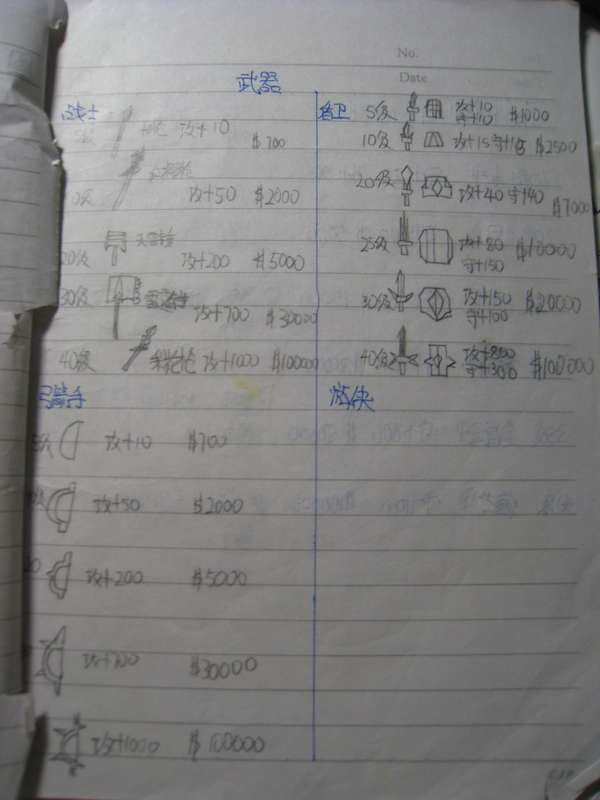 No.
Date
武器
战士
攻+10 $700
级 攻+50 $2000
20级 攻+200 $5000
30级 攻+700 $30000
40级 攻+1000 $100000
卫 5级 攻+10 守+10 $1000
10级 攻+15 守+15 $2500
20级 攻+40 守+40 $7000
25级 攻+80 守+150 $10000
30级 攻+150 守+100 $20000
40级 攻+800 守+300 $100000
弓箭手
级 攻+10 $700
级 攻+50 $2000
20 攻+200 $5000
攻+700 $30000
攻+1000 $100000
游侠